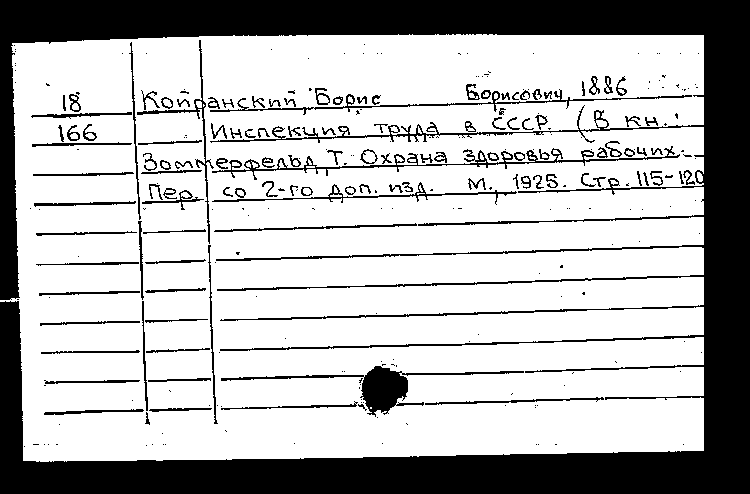 18 Койранский, Борис Борисович, 1886
166 Инспекция труда в СССР. (В кн.:
Зоммерфельд, Т. Охрана здоровья рабочих.
Пер. со 2-го доп. изд. М., 1925. Стр. 115-120